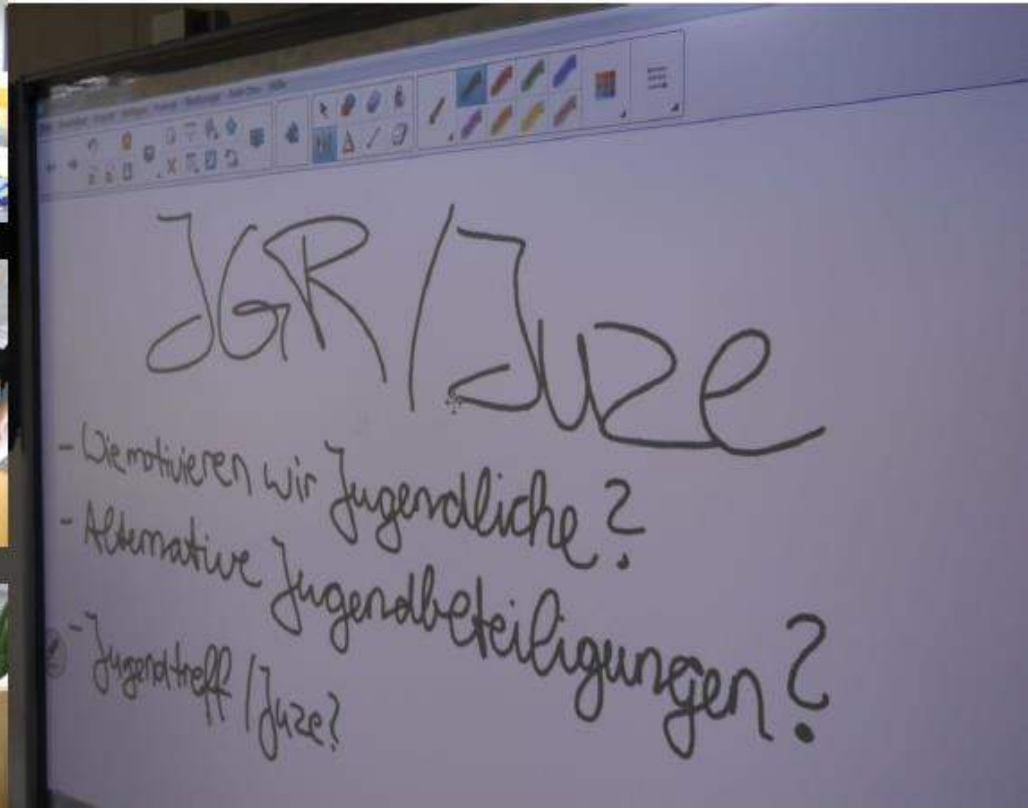 JGR / Juze
- Wie motivieren wir Jugendliche?
- Alternative Jugendbeteiligungen?
- Jugendtreff / Juze?